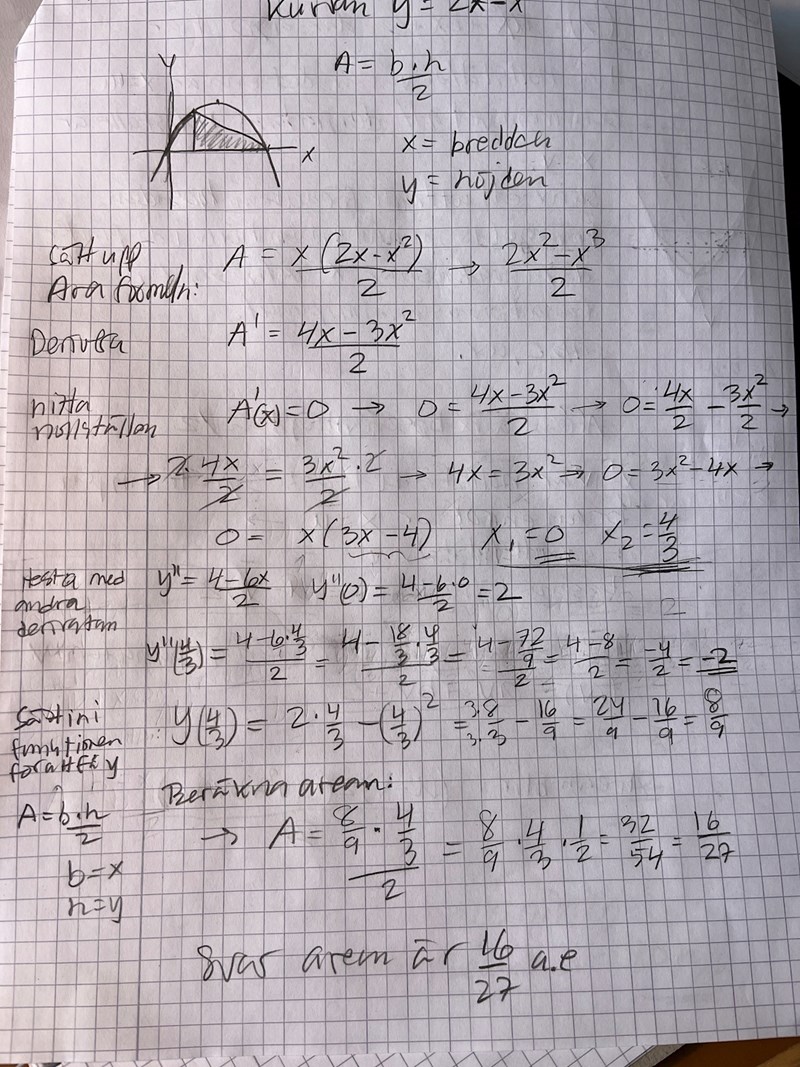 Kurvan y = 2x-x
A = b·h/2
y
x
x = bredden
y = höjden
Sätt upp Area formeln: A = x(2x-x²)/2 → 2x²-x³/2
Derivera A' = 4x-3x²/2
hitta nollställen A'(x)=0 → 0 = 4x-3x²/2 → 0 = 4x/2 - 3x²/2 →
→ 2·4x/2 = 3x²/2·2 → 4x = 3x² → 0 = 3x²-4x →
0 = x(3x-4) x₁=0 x₂=4/3
testa med andra derivatan y'' = 4-6x/2 y''(0) = 4-6·0/2 = 2
2
y''(4/3) = 4-6·4/3/2 = 4-18/3·4/3/2 = 4-72/9/2 = 4-8/2 = -4/2 = -2
Sätt in i funktionen för att få y y(4/3) = 2·4/3 - (4/3)² = 3·8/3·3 - 16/9 = 24/9 - 16/9 = 8/9
Beräkna arean:
A = b·h/2 → A = 8/9·4/3/2 = 8/9·4/3·1/2 = 32/54 = 16/27
b=x
h=y
Svar arean är 16/27 a.e